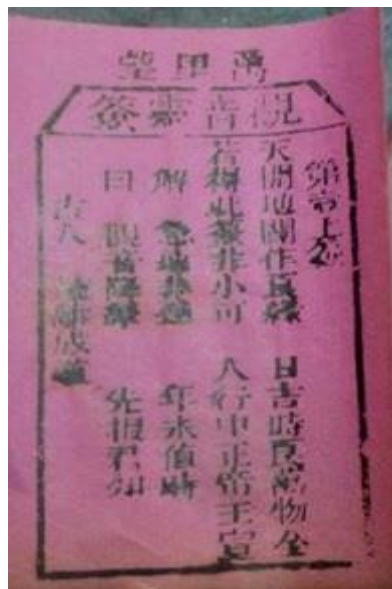 萬里望
观音靈簽
第壹上签
天開地闢作良緣 日吉時良萬物全
若得此簽非小可 人行中正帝王宣
解 非速 年未值時
曰 觀音降筆 先報君知
古人 成道